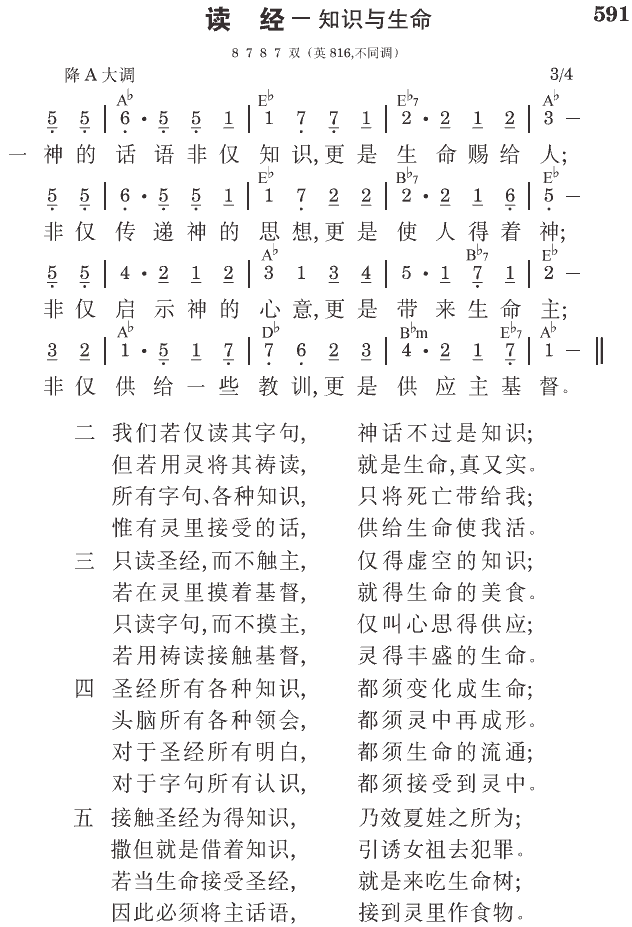 读 经 — 知识与生命 591
8 7 8 7 双 (英 816,不同调)
降 A 大调 3/4
A♭ E♭ E♭7 A♭
5 5 | 6 · 5 5 1 | 1 7 7 1 | 2 · 2 1 2 | 3 —
一 神的话语非仅知识,更是生命赐给人;
E♭ B♭7 E♭
5 5 | 6 · 5 5 1 | 1 7 2 2 | 2 · 2 1 6 | 5 —
非仅传递神的思想,更是使人得着神;
A♭ B♭7 E♭
5 5 | 4 · 2 1 2 | 3 1 3 4 | 5 · 1 7 1 | 2 —
非仅启示神的心意,更是带来生命主;
A♭ D♭ B♭m E♭7 A♭
3 2 | 1 · 5 1 7 | 7 6 2 3 | 4 · 2 1 7 | 1 — ‖
非仅供给一些教训,更是供应主基督。
二 我们若仅读其字句, 神话不过是知识;
但若用灵将其祷读, 就是生命,真又实。
所有字句、各种知识, 只将死亡带给我;
惟有灵里接受的话, 供给生命使我活。
三 只读圣经,而不触主, 仅得虚空的知识;
若在灵里摸着基督, 就得生命的美食。
只读字句,而不摸主, 仅叫心思得供应;
若用祷读接触基督, 灵得丰盛的生命。
四 圣经所有各种知识, 都须变化成生命;
头脑所有各种领会, 都须灵中再成形。
对于圣经所有明白, 都须生命的流通;
对于字句所有认识, 都须接受到灵中。
五 接触圣经为得知识, 乃效夏娃之所为;
撒但就是借着知识, 引诱女祖去犯罪。
若当生命接受圣经, 就是来吃生命树;
因此必须将主话语, 接到灵里作食物。